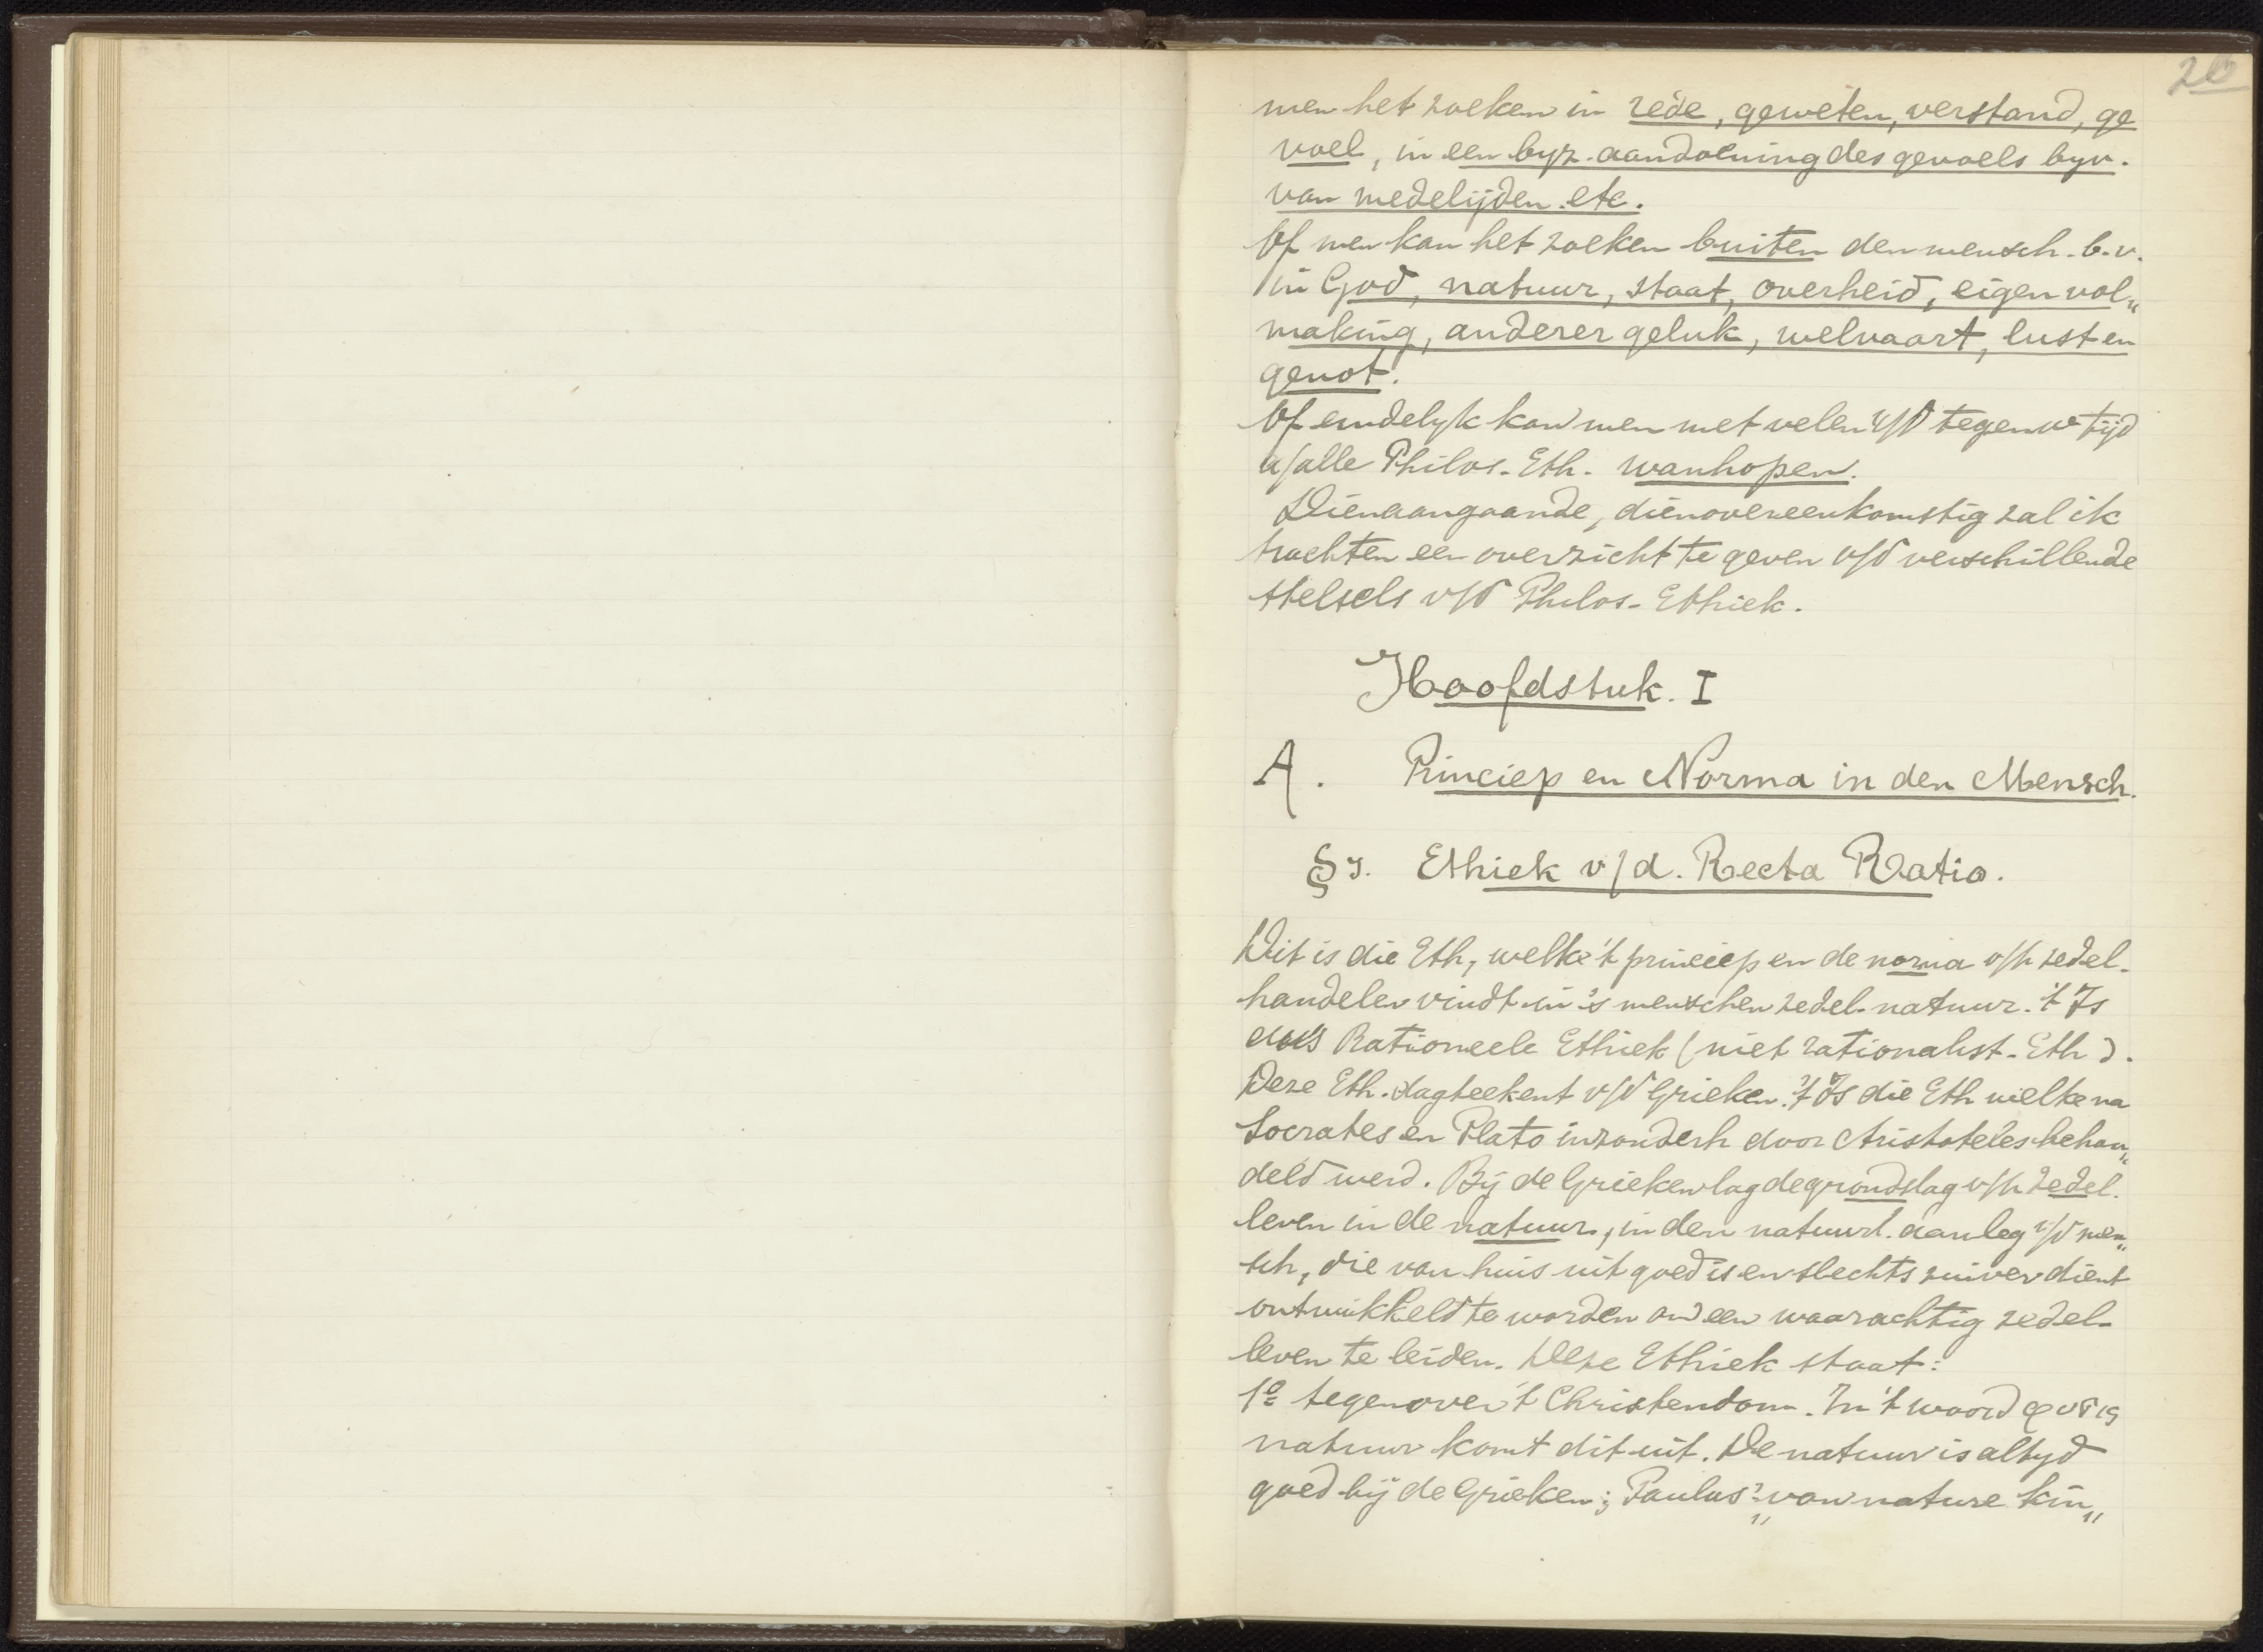 26
men het zoeken in rede, geweten, verstand, ge
voel, in een byz. aandoening des gevoels byv.
van medelijden etc.
Of men kan het zoeken buiten den mensch. b.v.
in God, natuur, staat, overheid, eigen vol„
making, anderer geluk, welvaart, lust en
genot.
Of eindelyk kan men met velen v/d tegenw tijd
a/alle Philos. Eth. wanhopen.
Dienaangaande, dienovereenkomstig zal ik
trachten een overzicht te geven v/d verschillende
stelsels v/d Philos. Ethiek.
Hoofdstuk. I
A. Princiep en Norma in den Mensch.
§1. Ethiek v/d. Recta Ratio.
Dit is die Eth, welke 't princiep en de norma v/h zedel.
handelen vindt in 's menschen zedel. natuur. 't Is
dus Rationeele Ethiek (niet rationalist. Eth).
Deze Eth. dagteekent v/d Grieken. 't Is die Eth welke na
Socrates en Plato inzonderh door Aristoteles behan„
deld werd. Bij de Grieken lag de grondslag v/h zedel.
leven in de natuur, in den natuurl. aanleg v/d men„
sch, die van huis uit goed is en slechts zuiver dient
ontwikkeld te worden om een waarachtig zedel.
leven te leiden. Deze Ethiek staat:
1º tegenover 't Christendom. In 't woord φυσις
natuur komt dit uit. De natuur is altyd
goed bij de Grieken; Paulus: „van nature kin„